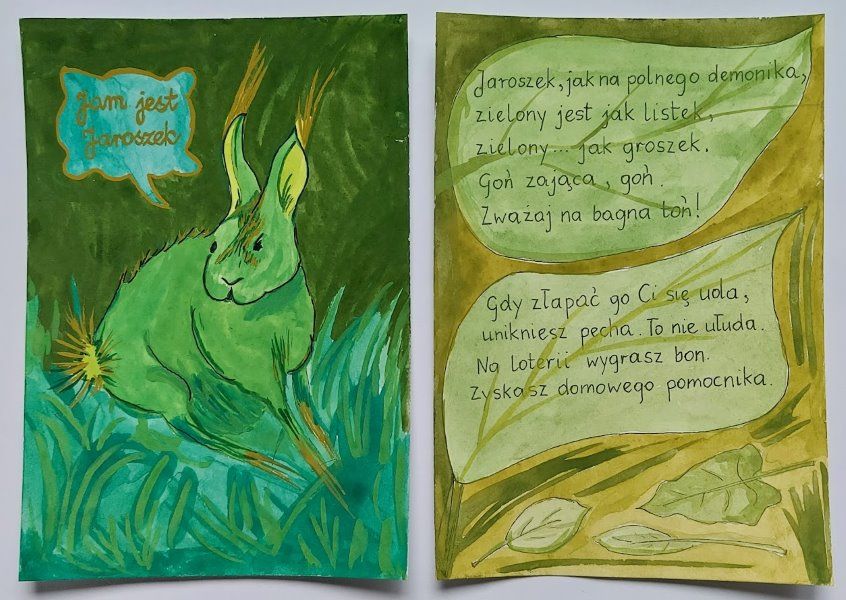 Jam jest
Jaroszek
Jaroszek, jak na polnego demonika,
zielony jest jak listek,
zielony... jak groszek.
Goń zająca, goń.
Zważaj na bagna toń!
Gdy złapać go Ci się uda,
unikniesz pecha. To nie ułuda.
Na loterii wygrasz bon.
Zyskasz domowego pomocnika.